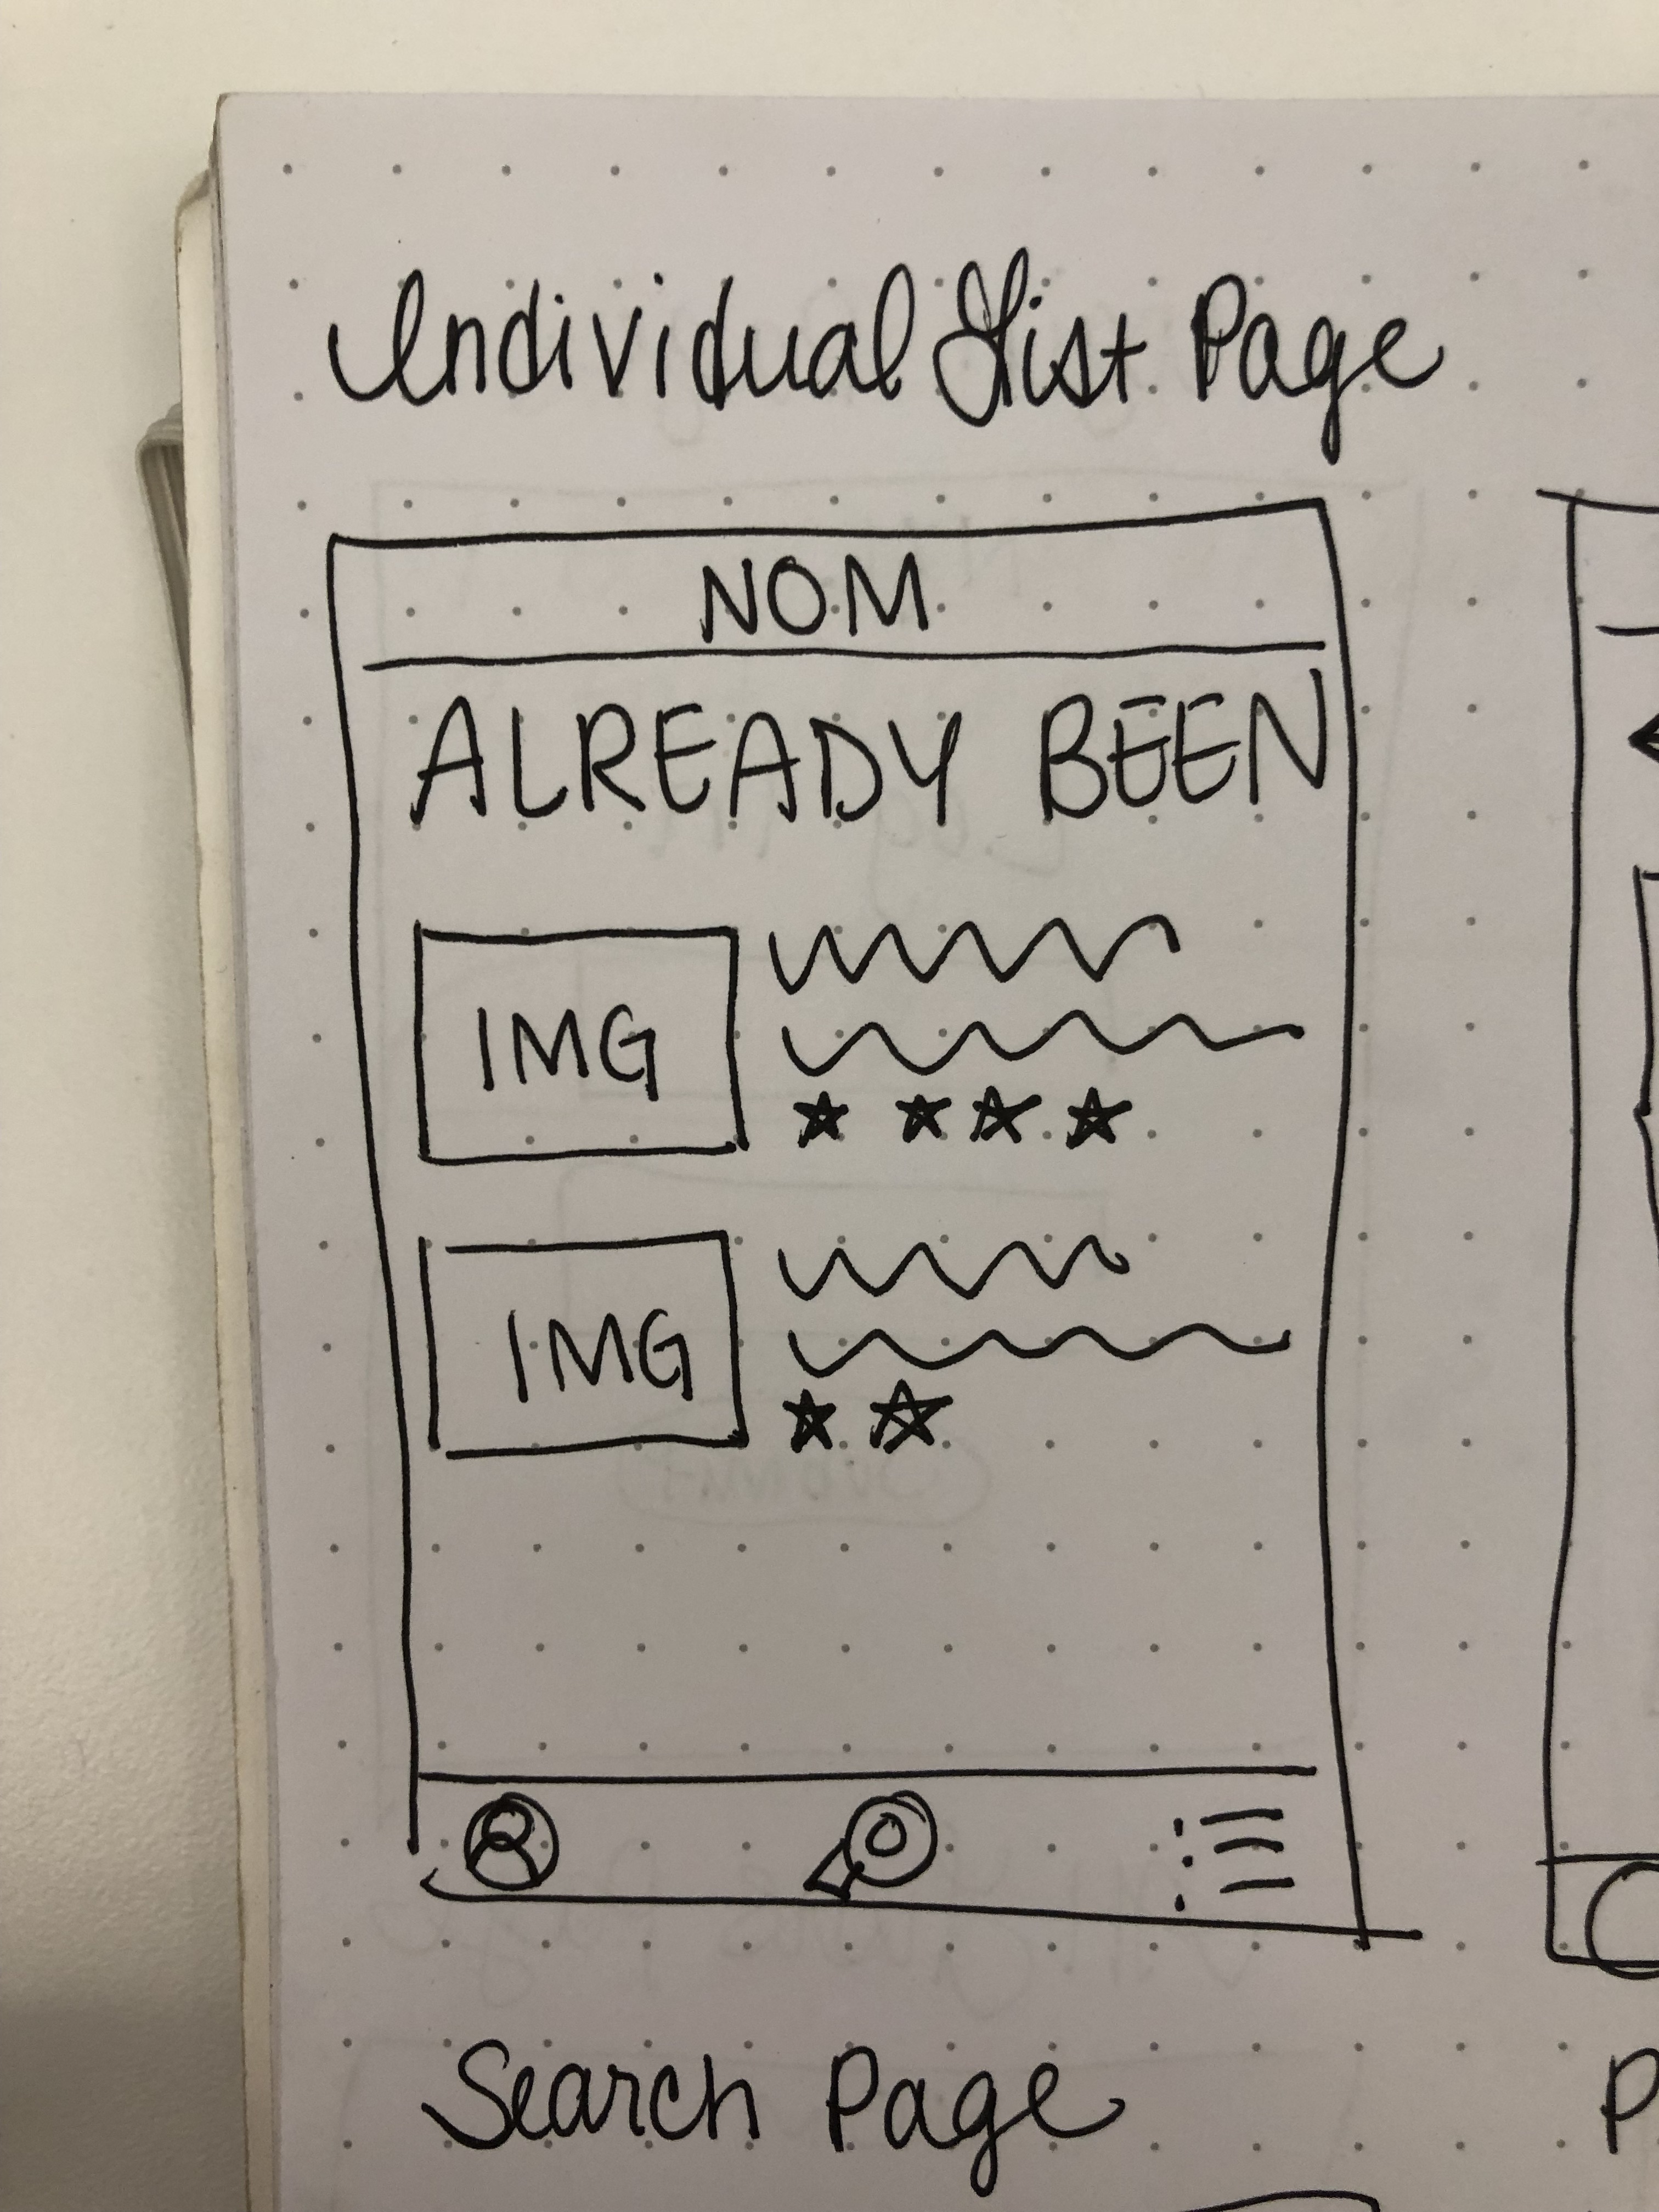 Individual List Page
NOM
ALREADY BEEN
IMG
IMG
Search Page